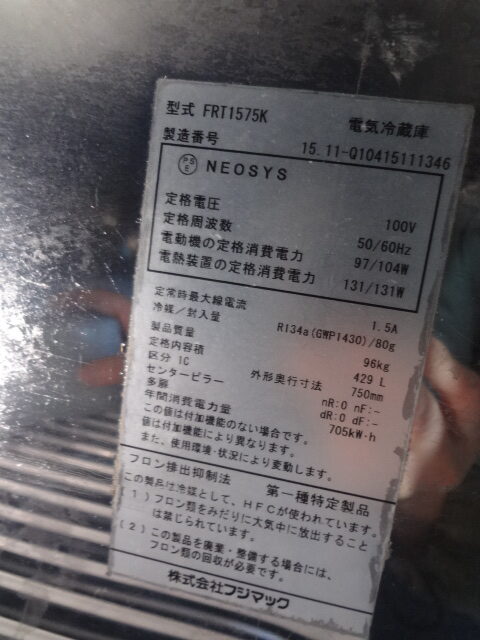 型式 FRT1575K 電気冷蔵庫
製造番号 15.11-Q10415111346
PSE NEOSYS
定格電圧 100V
定格周波数 50/60Hz
電動機の定格消費電力 97/104W
電熱装置の定格消費電力 131/131W
定常時最大線電流 1.5A
冷媒／封入量 R134a(GWP1430)/80g
製品質量 96kg
定格内容積 429 L
区分 1C 外形奥行寸法 750mm
センターピラー nR:0 nF:-
多扉 dR:0 dF:-
年間消費電力量 705kW·h
この値は付加機能のない場合です。
値は付加機能により異なります。
また、使用環境・状況により変動します。
フロン排出抑制法 第一種特定製品
この製品は冷媒として、HFCが使われています。
(1) フロン類をみだりに大気中に放出すること
は禁じられています。
(2) この製品を廃棄・整備する場合には、
フロン類の回収が必要です。
株式会社フジマック